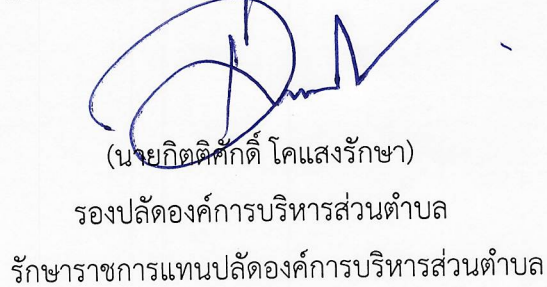 (นายกิตติศักดิ์ โคแสงรักษา)
รองปลัดองค์การบริหารส่วนตำบล
รักษาราชการแทนปลัดองค์การบริหารส่วนตำบล